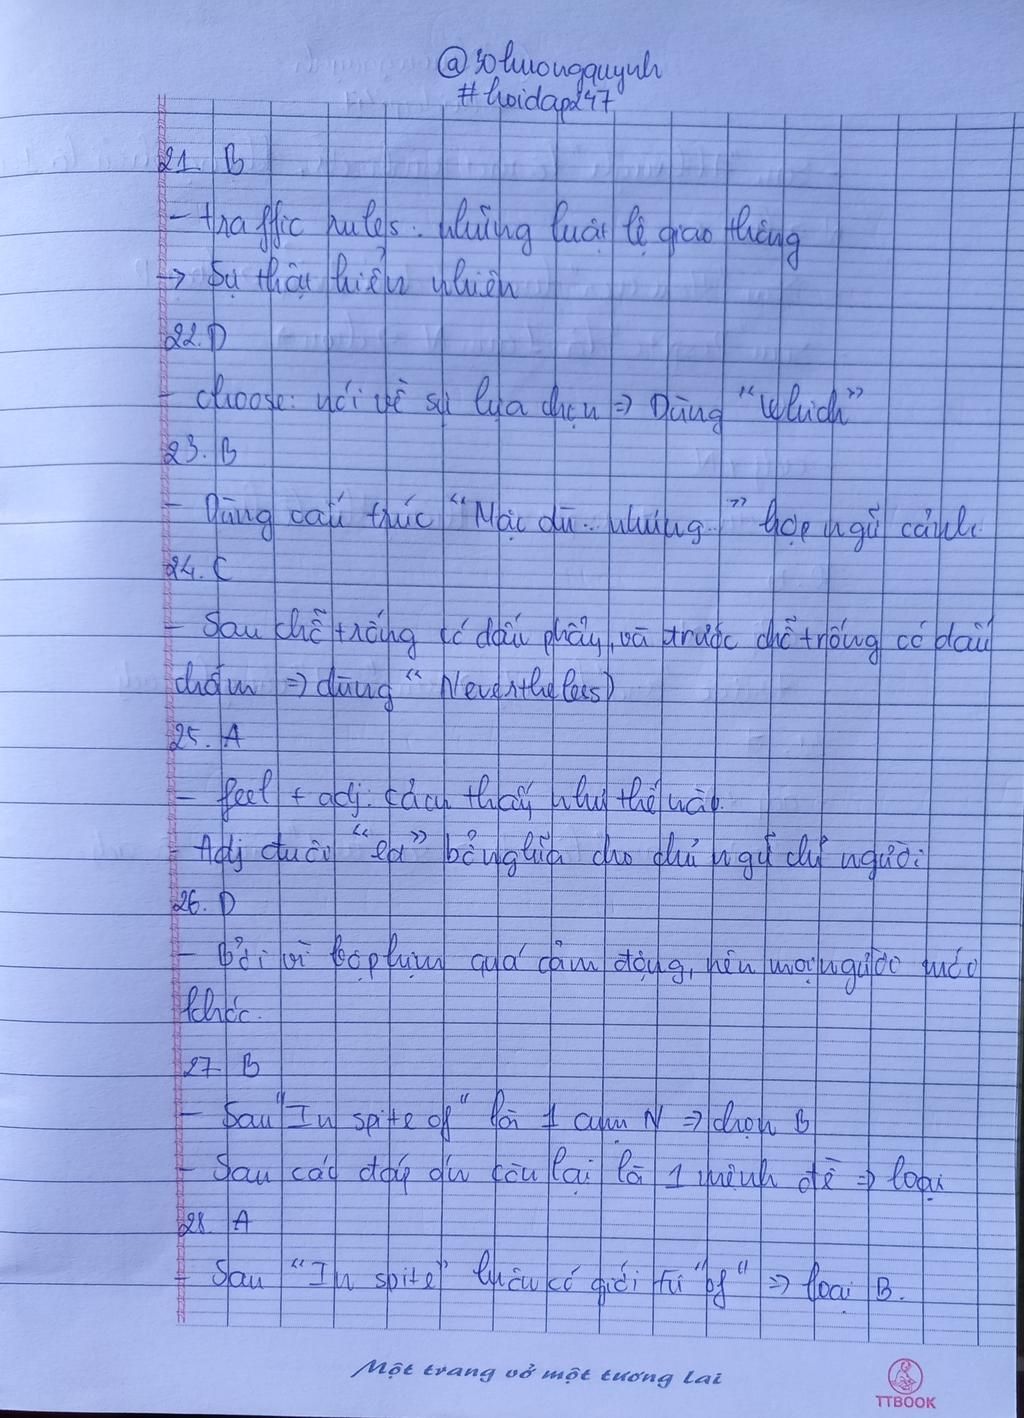 @30huongquynh
#hoidap247
21. B
- traffic rules: những luật lệ giao thông
→ Sự thật hiển nhiên
22. D
- choose: nói về sự lựa chọn => Dùng "Which"
23. B
- Dùng cấu trúc "Mặc dù.. nhưng.." hợp ngữ cảnh.
24. C
- Sau chỗ trống có dấu phẩy, và trước chỗ trống có dấu
chấm => dùng "Nevertheless)
25. A
- feel + adj: cảm thấy như thế nào.
- Adj đuôi "ed" bổ nghĩa cho chủ ngữ chỉ người.
26. D
- Bởi vì bộ phim quá cảm động, nên mọi người
khóc.
27 B
- Sau "In spite of" là 1 cụm N => chọn B
- Sau các đáp án còn lại là 1 mệnh đề => loại
28. A
- Sau "In spite" luôn có giới từ "of" => loại B.
Một trang vở một tương lai
TTBOOK